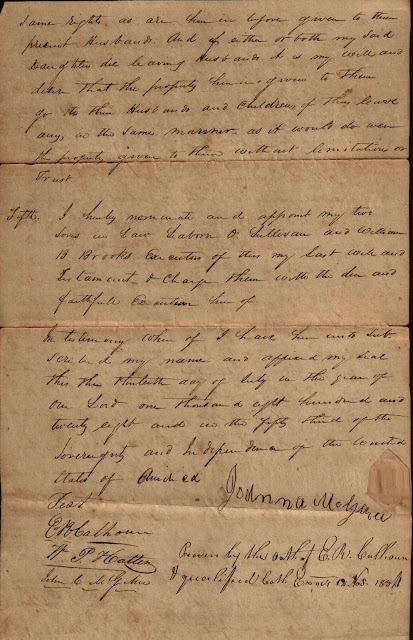 same rights, as are herein before given to their
present Husbands. And if either or both my said
Daughters die leaving Husbands it is my will and
desire that the property herein given to them
go to their Husbands and Children if they leave
any, in the same manner as it would do were
the property given to them without limitation or
Trust
Fifth. I hereby nominate and appoint my two
sons in Law O. Sullivan and William
B Brooks Executors of this my last will and
Testament & charge them with the due and
faithfull execution here of
In testimony where of I have here unto sub
scribed my name and affixed my seal
this the thirteenth day of July in the year of
Our Lord one thousand eight hundred and
twenty eight and in the fifty third of the
Sovereignty and Independence of the United
States of America
Joanna
Test
E R Calhoun
W. P. Hatten
John C. McGehee
Proven by the oath of E. R. Calhoun
& qualified both Exors 12 Nov. 1834